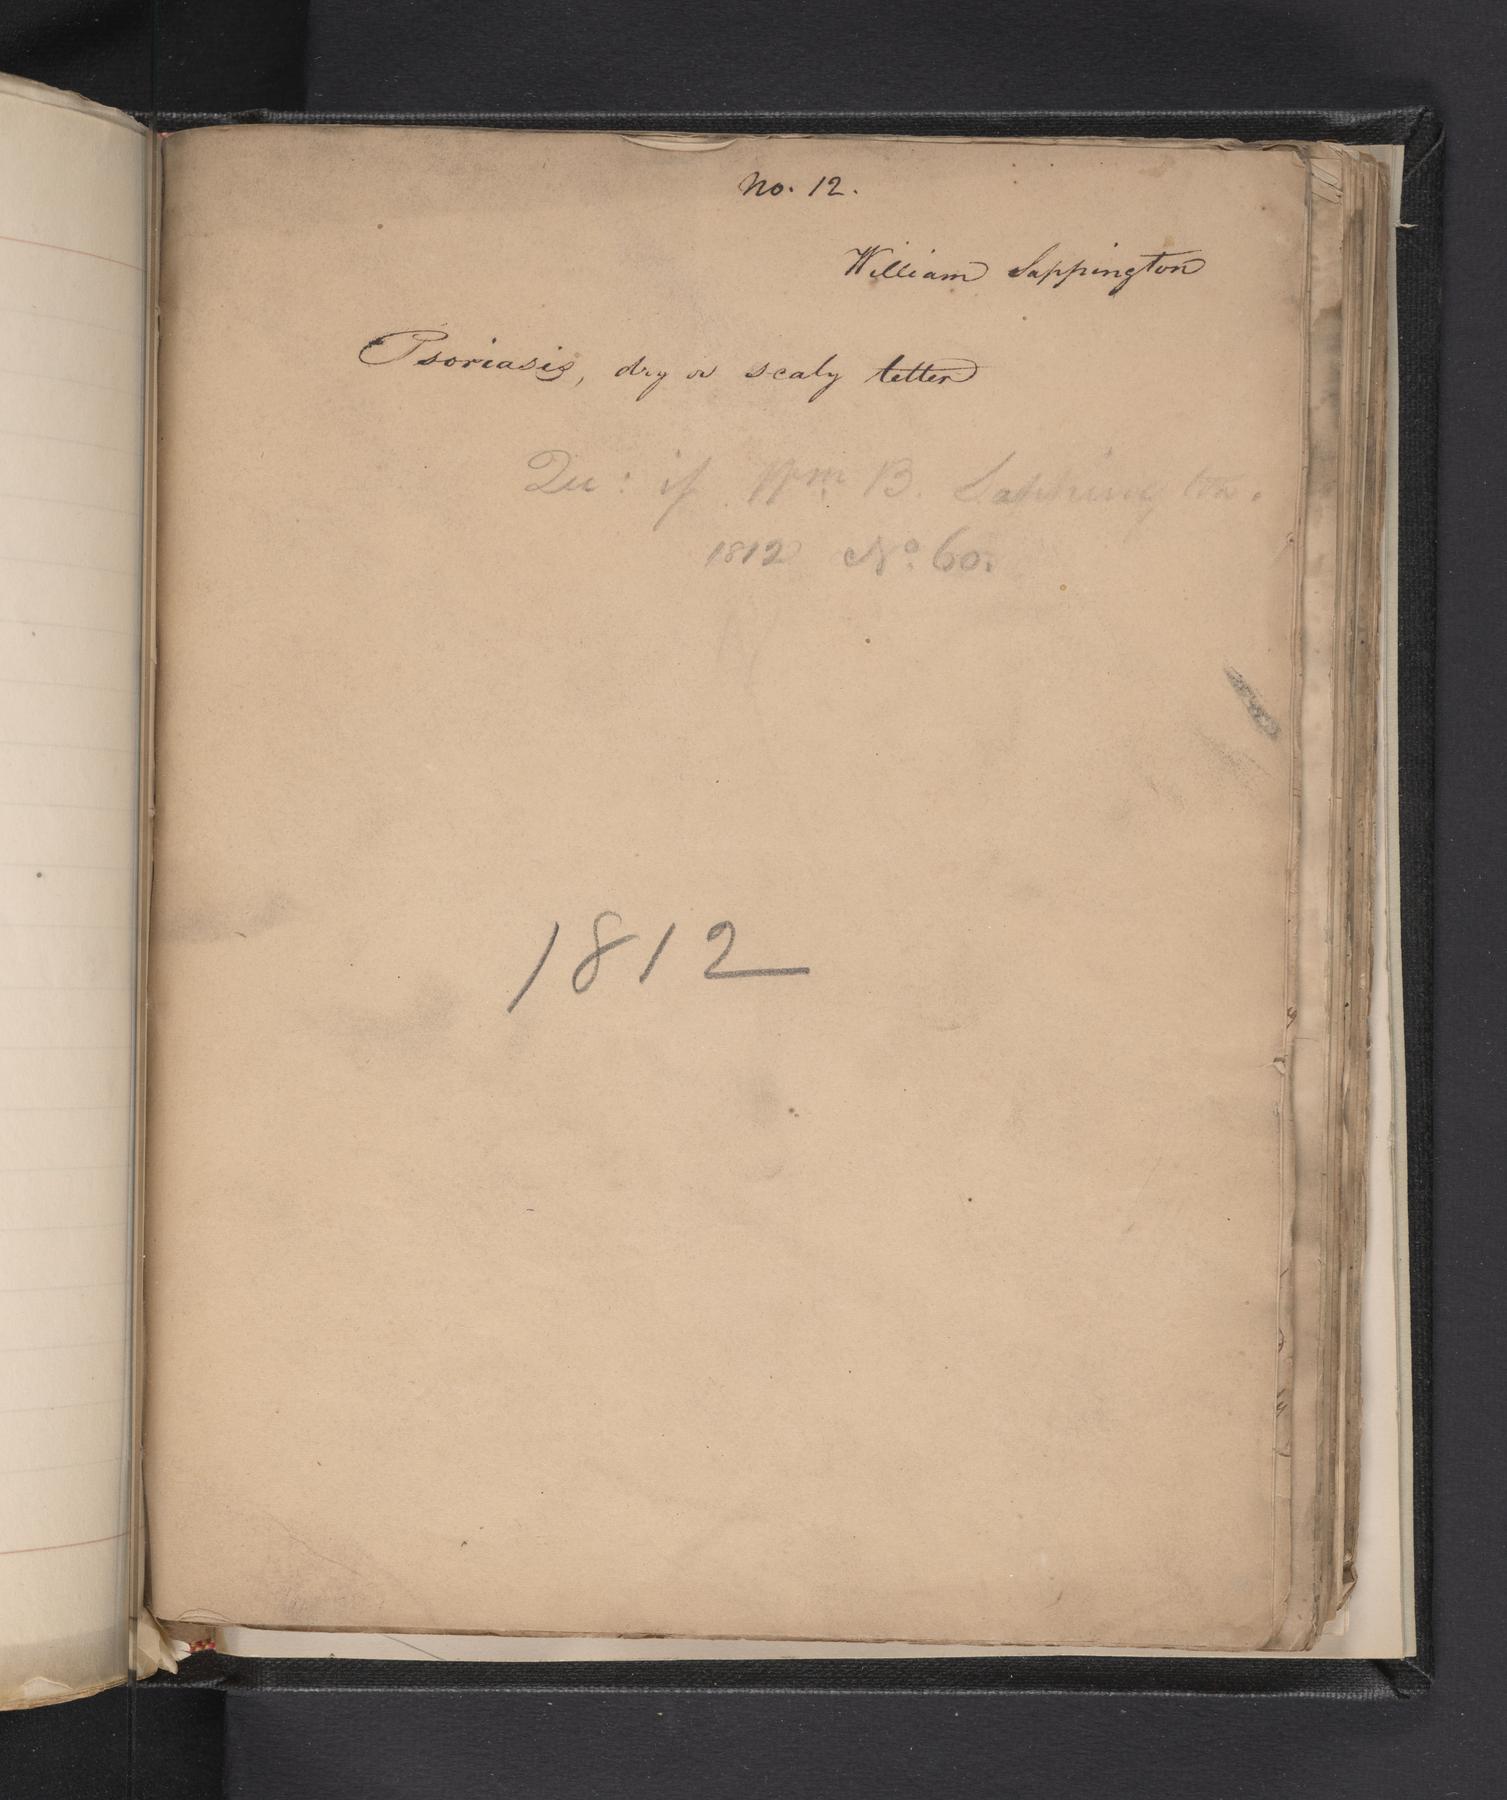 No. 12.
William Sappington
Psoriasis, dry or scaly tetter
Qu: if Wm. B. Sappington.
1812 No. 60.
1812